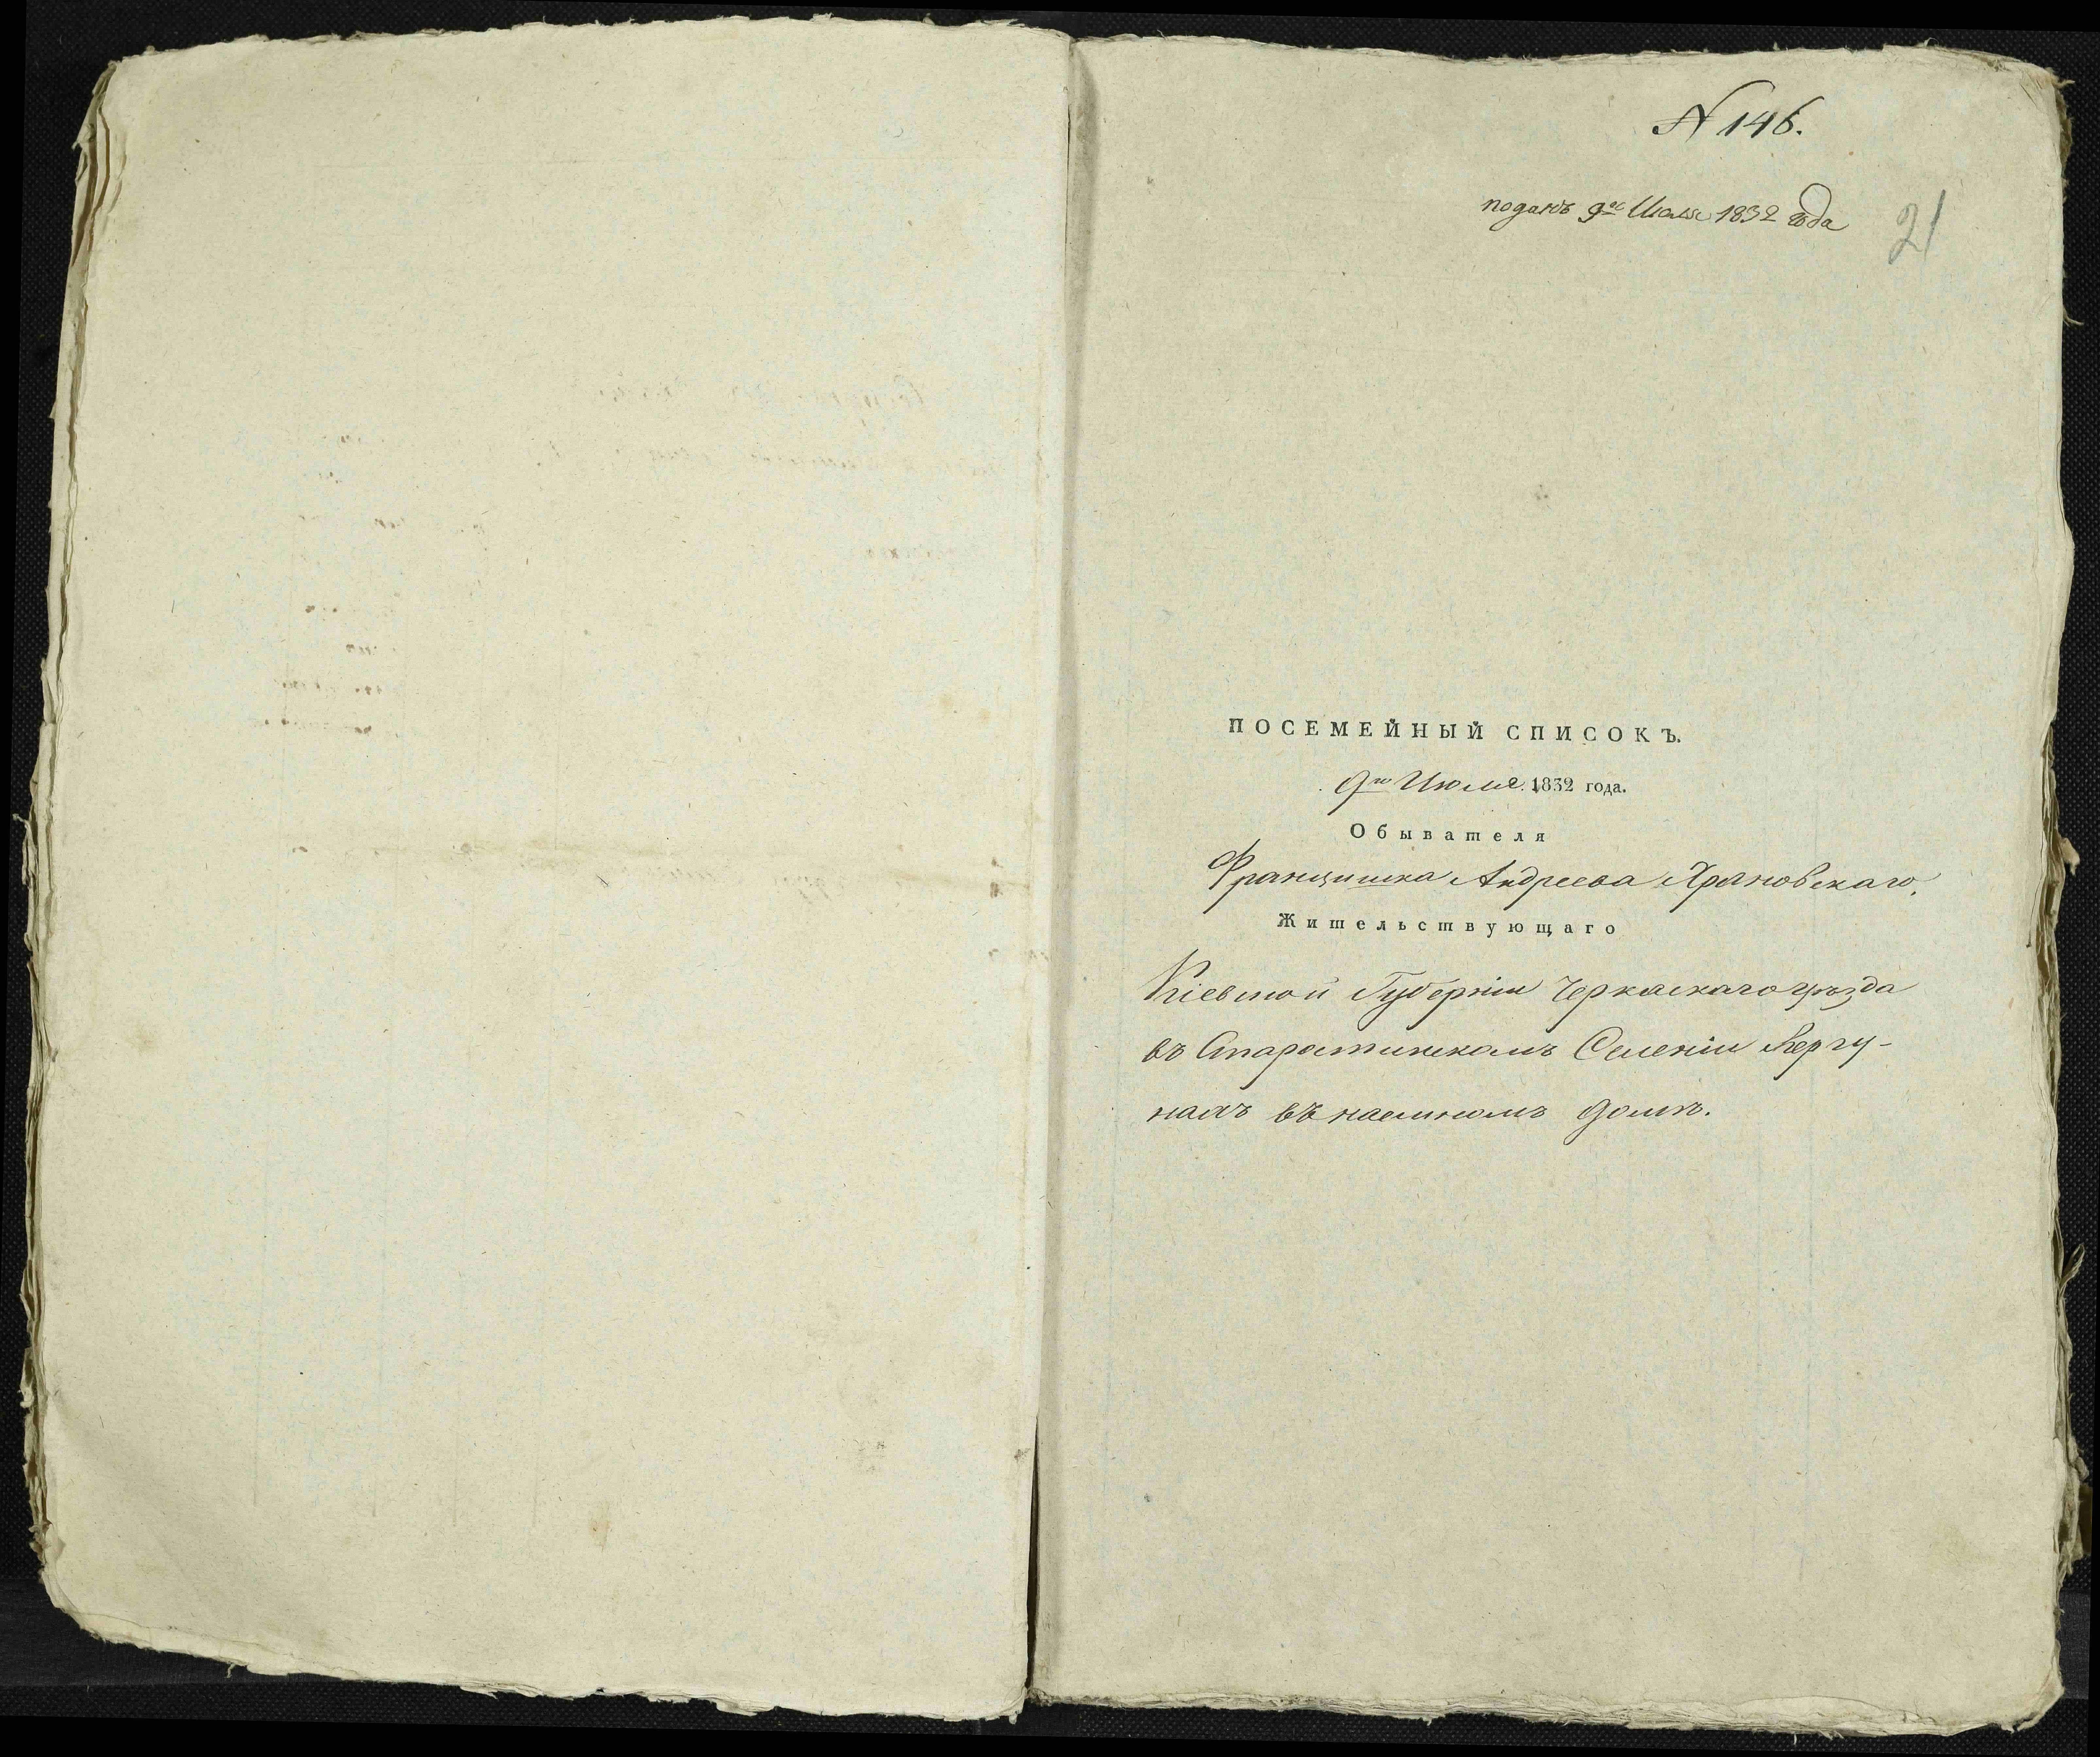 N 146.
поданъ 9го Июля 1832 года
21
ПОСЕМЕЙНЫЙ СПИСОКЪ.
9го Июля 1832 года.
Обывателя
Францишка Андреева Храновскаго,
Жительствующаго
Кіевской Губерніи Черкаскаго уѣзда
въ Старостинскомъ Селеніи Вергу-
нахъ въ наемномъ домѣ.